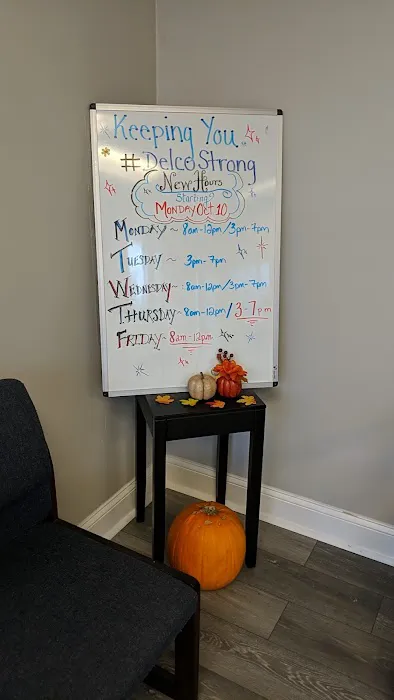 Keeping You
#DelcoStrong
New Hours
Starting?
Monday Oct 10
Monday ~ 8am-12pm/3pm-7pm
Tuesday ~ 3pm-7pm
Wednesday ~ 8am-12pm/3pm-7pm
Thursday ~ 8am-12pm/3-7pm
Friday ~ 8am-12pm